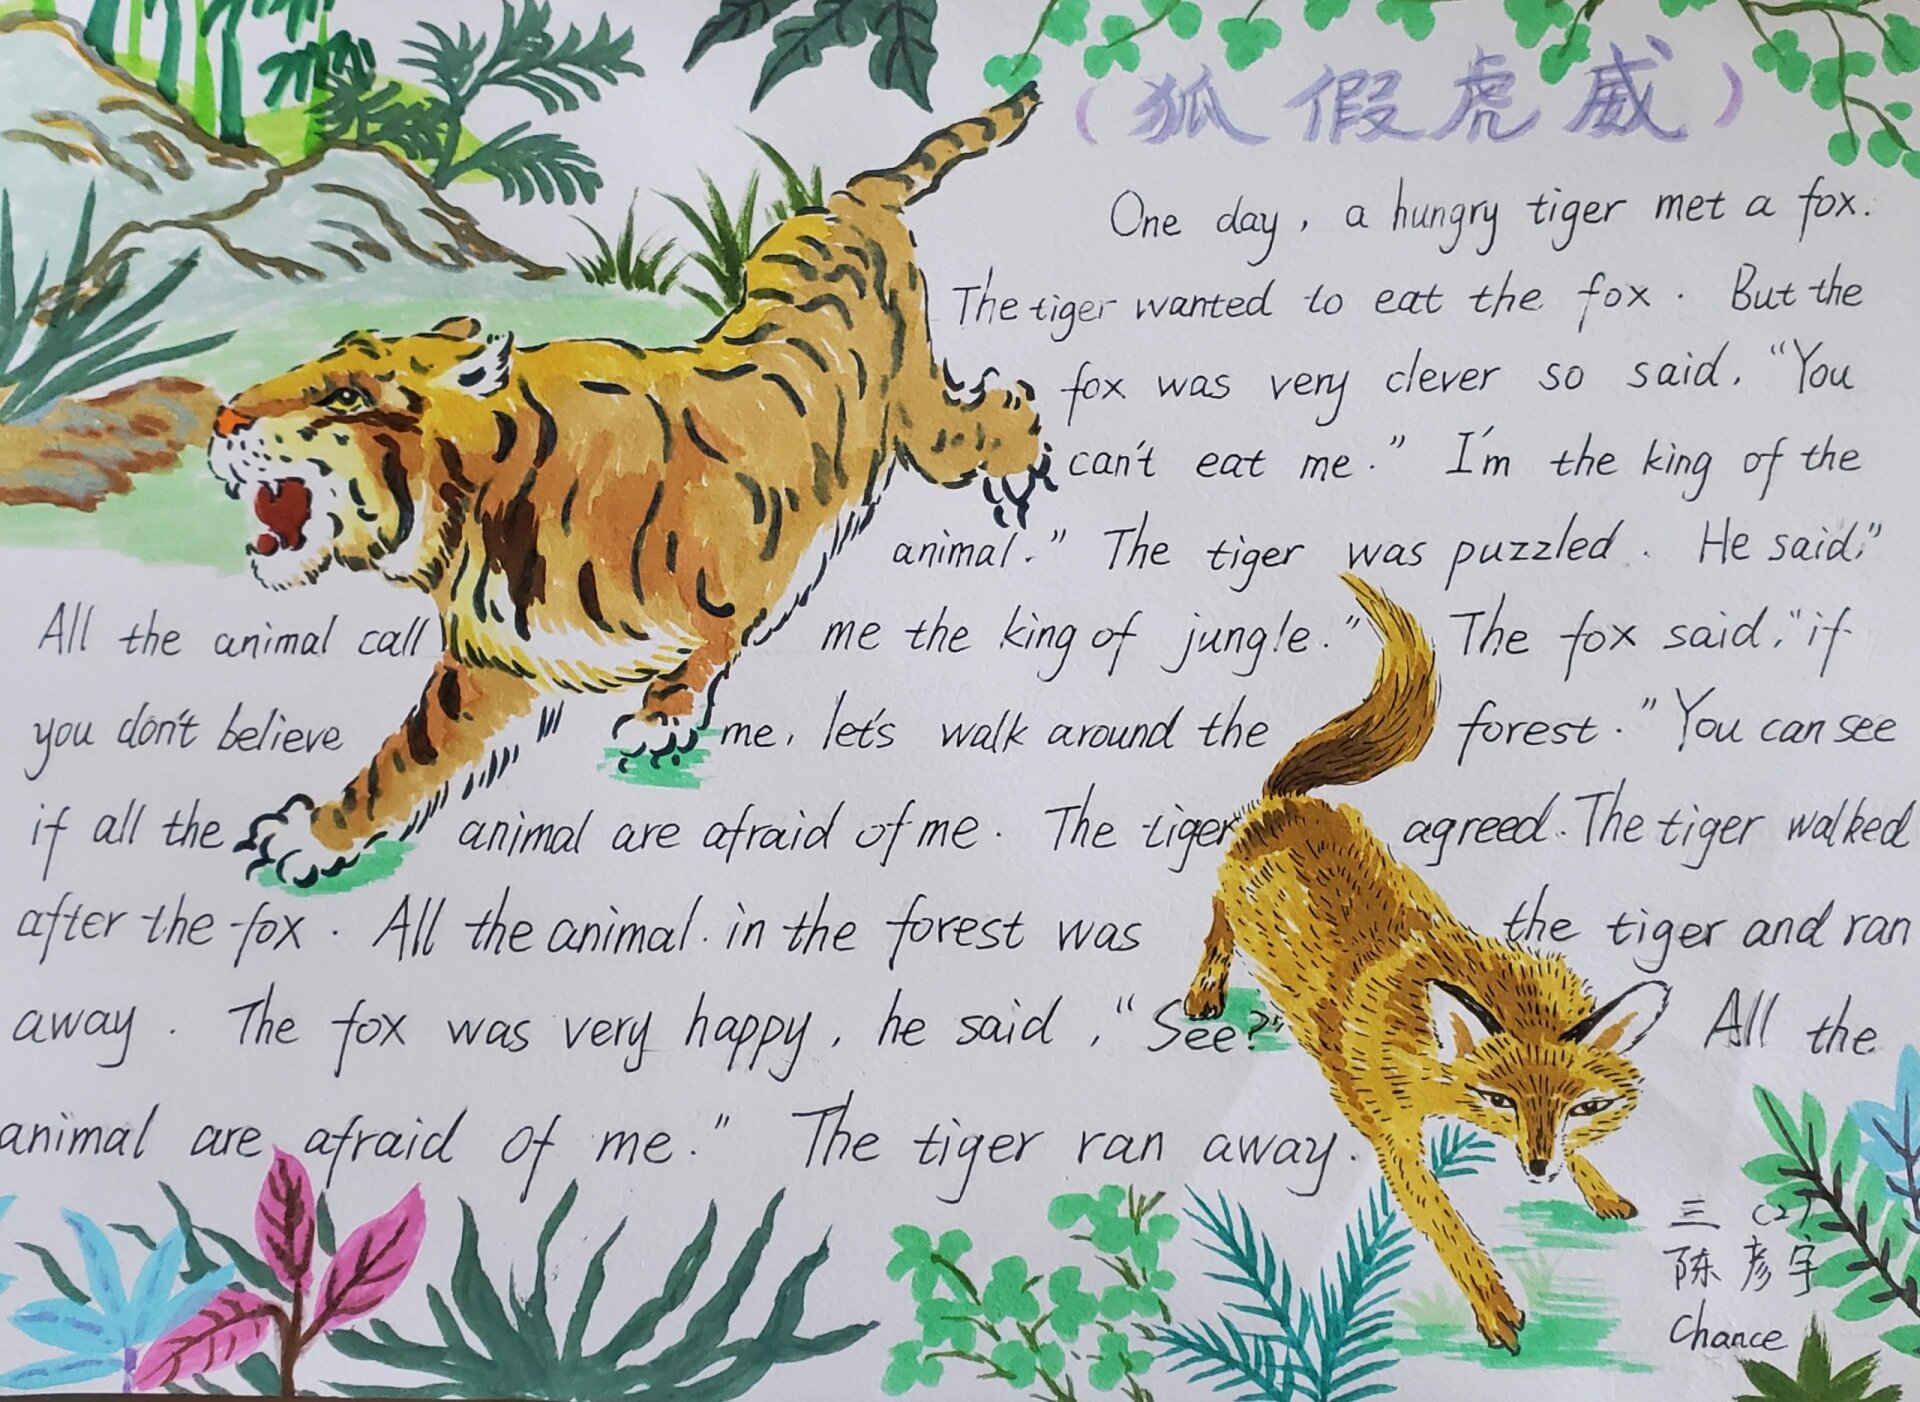 （狐假虎威）
One day, a hungry tiger met a fox.
The tiger wanted to eat the fox. But the
fox was very clever so said, "You
can't eat me." I'm the king of the
animal." The tiger was puzzled. He said,"
All the animal call me the king of jungle." The fox said,"if
you don't believe me, let's walk around the forest." You can see
if all the animal are afraid of me. The tiger agreed. The tiger walked
after the fox. All the animal in the forest was the tiger and ran
away. The fox was very happy, he said, "See?" All the
animal are afraid of me." The tiger ran away.
三（2）
陈彦宇
Chance